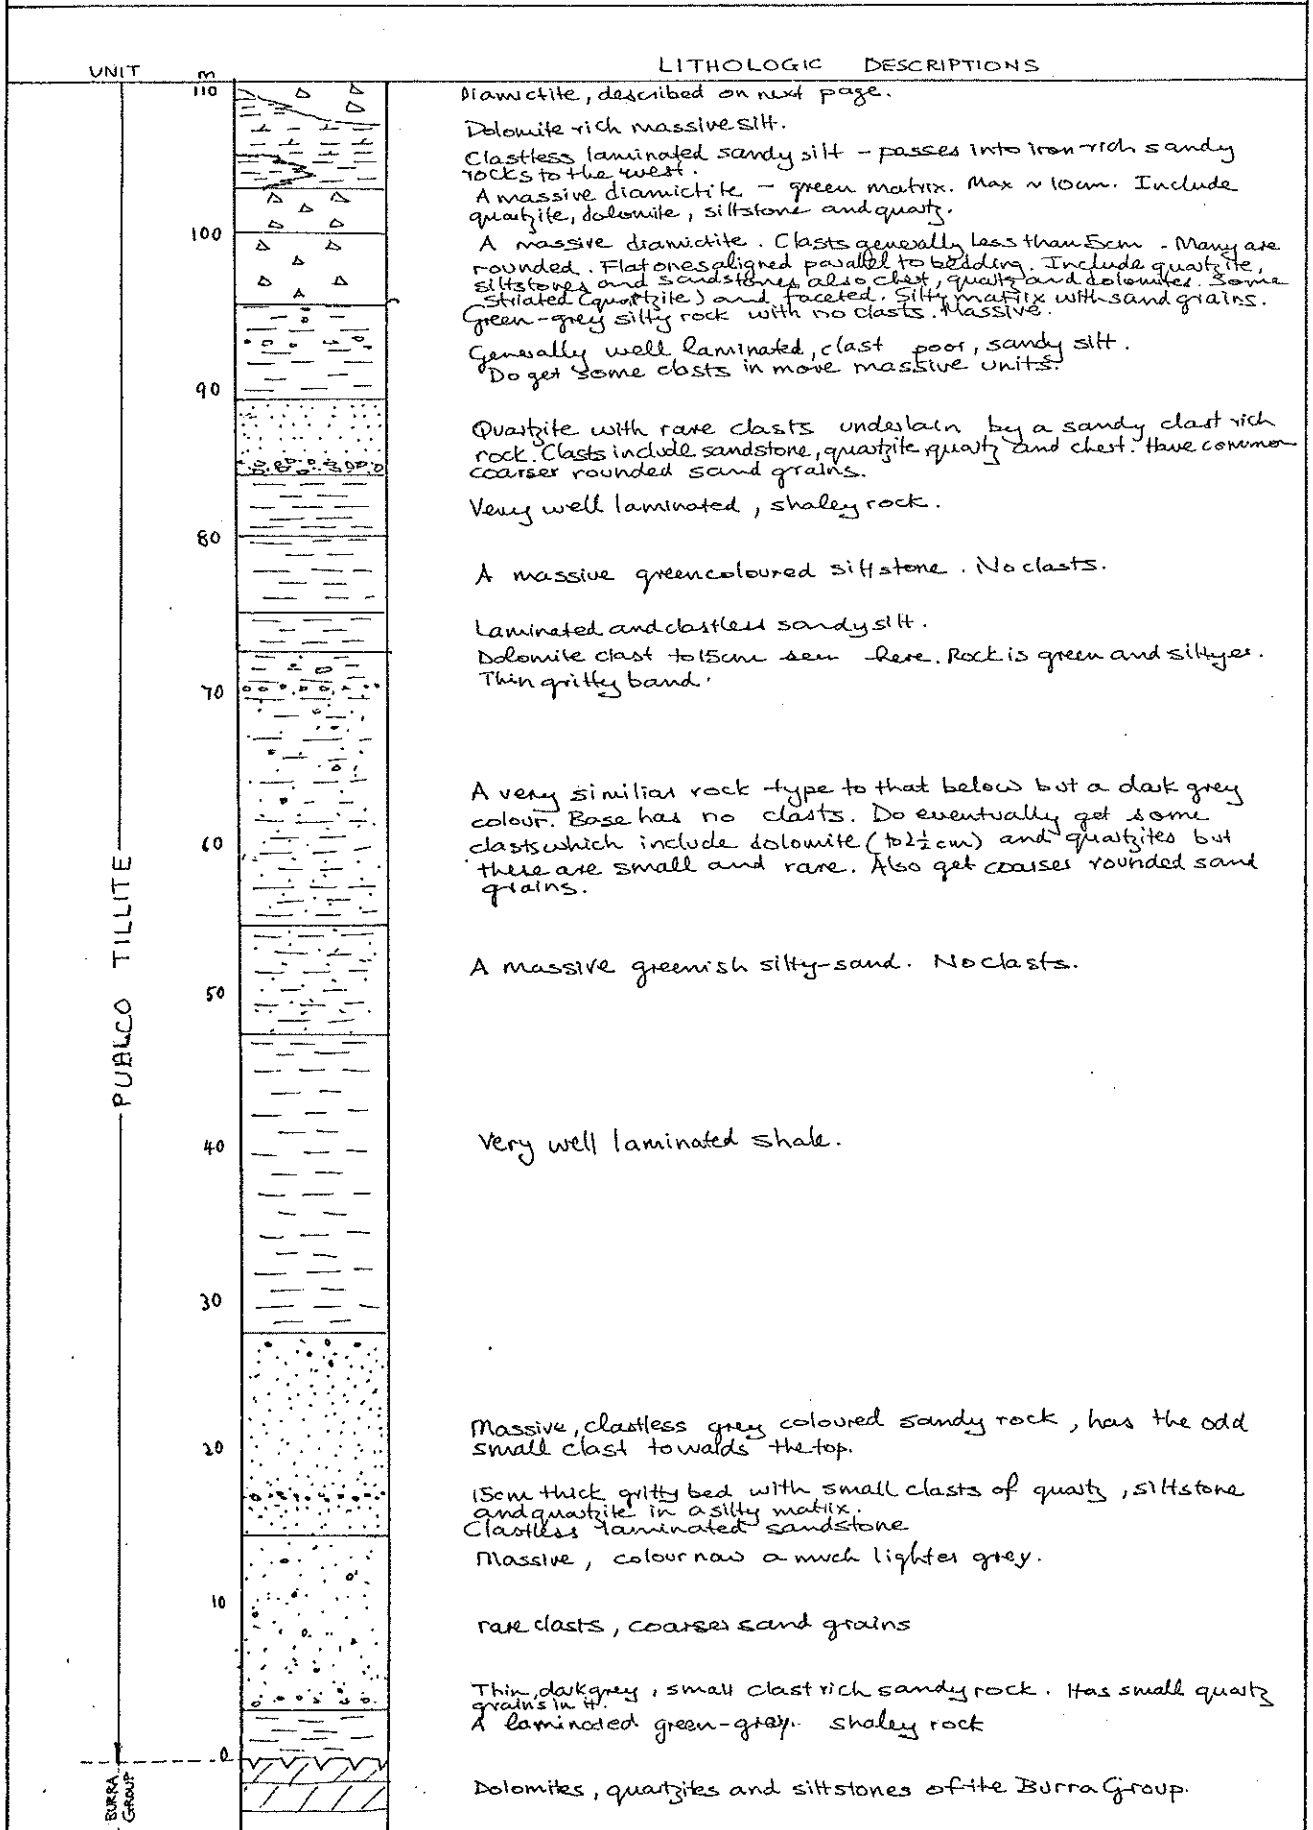 UNIT m LITHOLOGIC DESCRIPTIONS
110
Diamictite, described on next page.
Dolomite rich massive silt.
Clastless laminated sandy silt - passes into iron-rich sandy
rocks to the west.
A massive diamictite - green matrix. Max ~ 10cm. Include
quartzite, dolomite, siltstone and quartz.
100
A massive diamictite. Clasts generally less than 5cm - Many are
rounded. Flat ones aligned parallel to bedding. Include quartzite,
siltstones and sandstones also chert, quartz and dolomites. Some
striated (quartzite) and faceted. Silty matrix with sand grains.
Green-grey silty rock with no clasts. Massive.
Generally well laminated, clast poor, sandy silt.
Do get some clasts in more massive units.
90
Quartzite with rare clasts underlain by a sandy clast rich
rock. Clasts include sandstone, quartzite quartz and chert. Have common
coarser rounded sand grains.
Very well laminated, shaley rock.
80
A massive green coloured siltstone. No clasts.
Laminated and clastless sandy silt.
Dolomite clast to 15cm seen here. Rock is green and siltyer.
Thin gritty band.
70
A very similiar rock type to that below but a dark grey
colour. Base has no clasts. Do eventually get some
clasts which include dolomite (to 2½cm) and quartzites but
these are small and rare. Also get coarser rounded sand
grains.
60
A massive greenish silty-sand. No clasts.
50
PUALCO TILLITE
Very well laminated shale.
40
30
Massive, clastless grey coloured sandy rock, has the odd
small clast towards the top.
20
15cm thick gritty bed with small clasts of quartz, siltstone
and quartzite in a silty matrix.
Clastless laminated sandstone
Massive, colour now a much lighter grey.
10
rare clasts, coarser sand grains
Thin, dark grey, small clast rich sandy rock. Has small quartz
grains in it.
A laminated green-gray. shaley rock
0
Dolomites, quartzites and siltstones of the Burra Group.
BURRA
GROUP